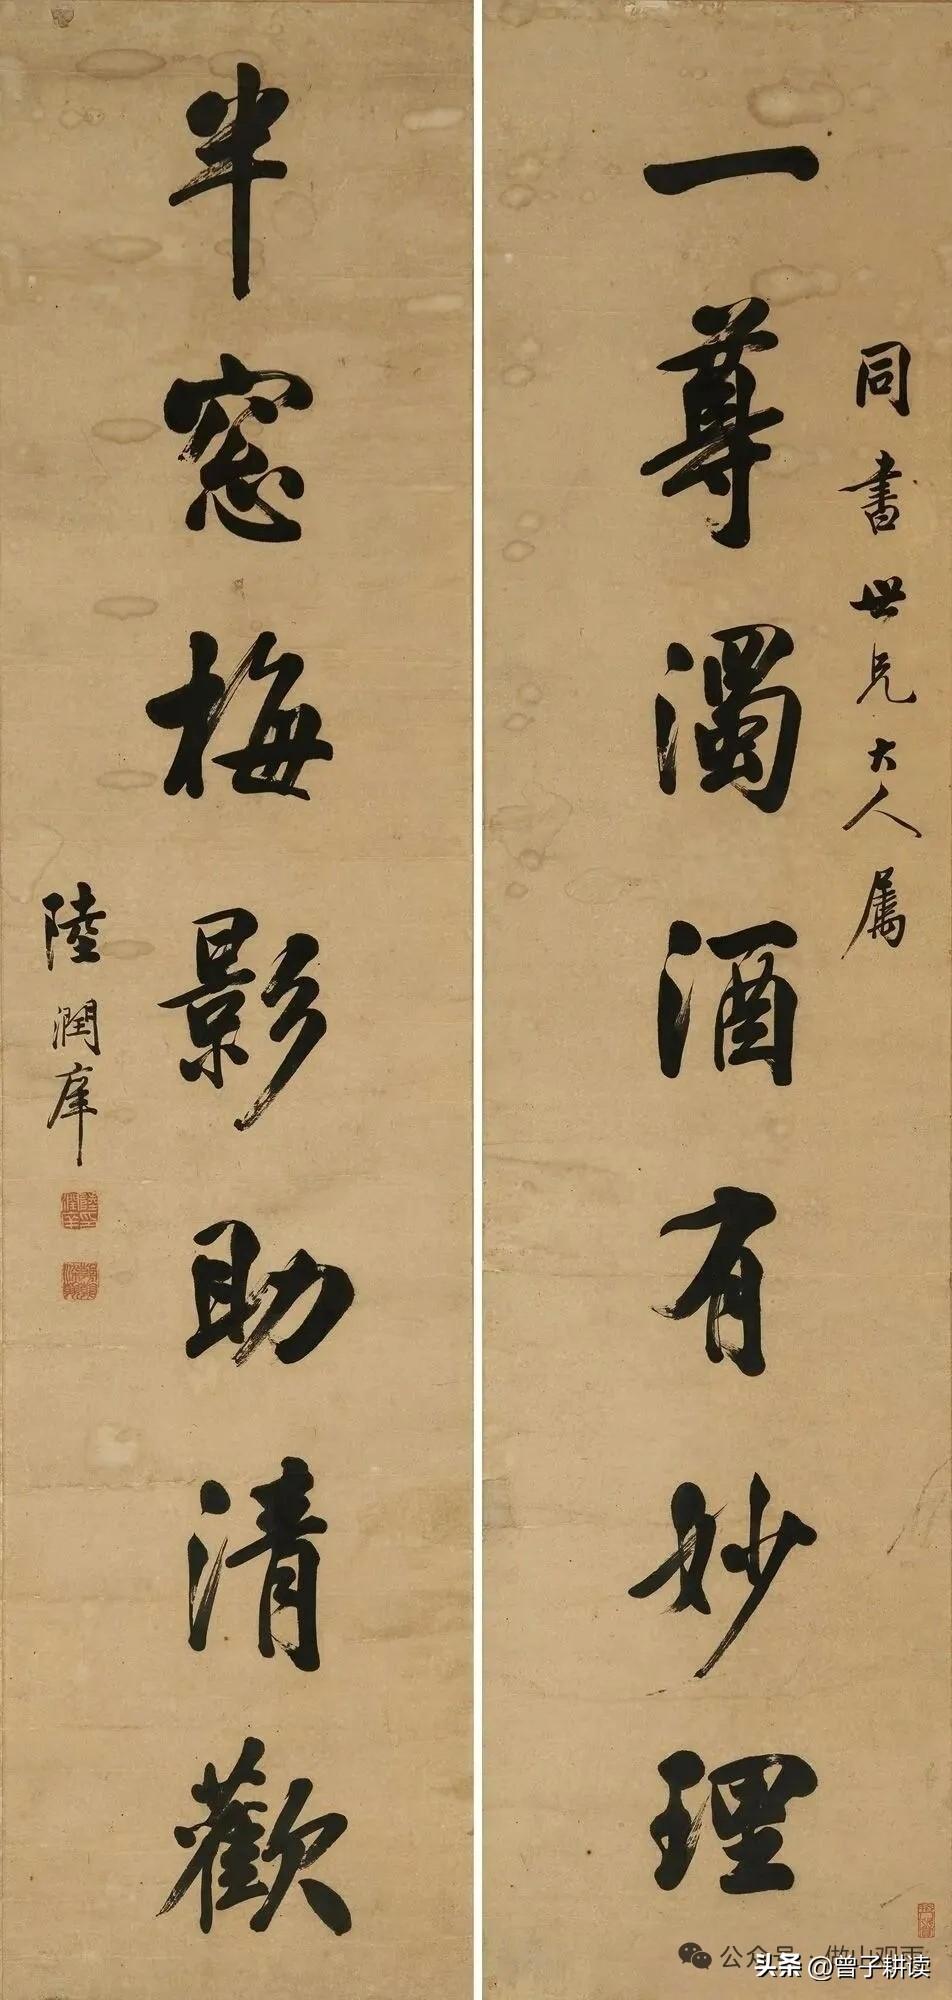 同書世兄大人属
一尊濁酒有妙理
半窓梅影助清歡
陸潤庠
公众号·做山观雨
头条 @曾子耕读